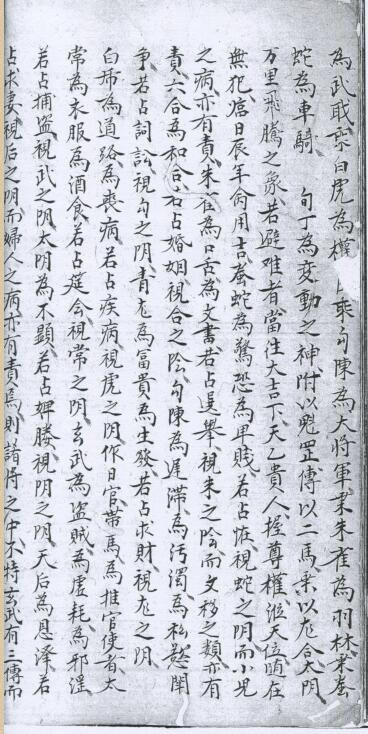 為武戢乘白虎為權日乘勾陳為大將軍乘朱雀為羽林乘螣
蛇為車騎　旬丁為変動之神附以魁罡傳以二馬乗以龙合太阴
万里飛騰之象若避难者當住大吉下天乙貴人握尊權涖天位随在
無犯㝛日辰年命用吉螣蛇為驚恐為卑賤若占怪視蛇之阴而小児
之病亦有責朱雀為口舌為文書若占選舉視朱之陰而文移之類亦有
責六合為和合若占婚姻視合之陰勾陳為遅滞為污濁為私慾閗
争若占詞訟視勾之阴青龙為富貴為生發若占求財視龙之阴
白帍為道路為喪病若占疾病視虎之阴作日官帯馬為推官使者太
常為衣服為酒食若占筵会視常之阴玄武為盗賊為虚耗為邪淫
若占捕盗視武之阴太阴為不顕若占婢媵視阴之阴天后為恩泽若
占求妻視后之阴而婦人之病亦有責焉則諸将之中不特玄武有三傳而